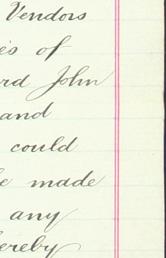 Vendors
es of
rd John
and
could
e made
any
ereby